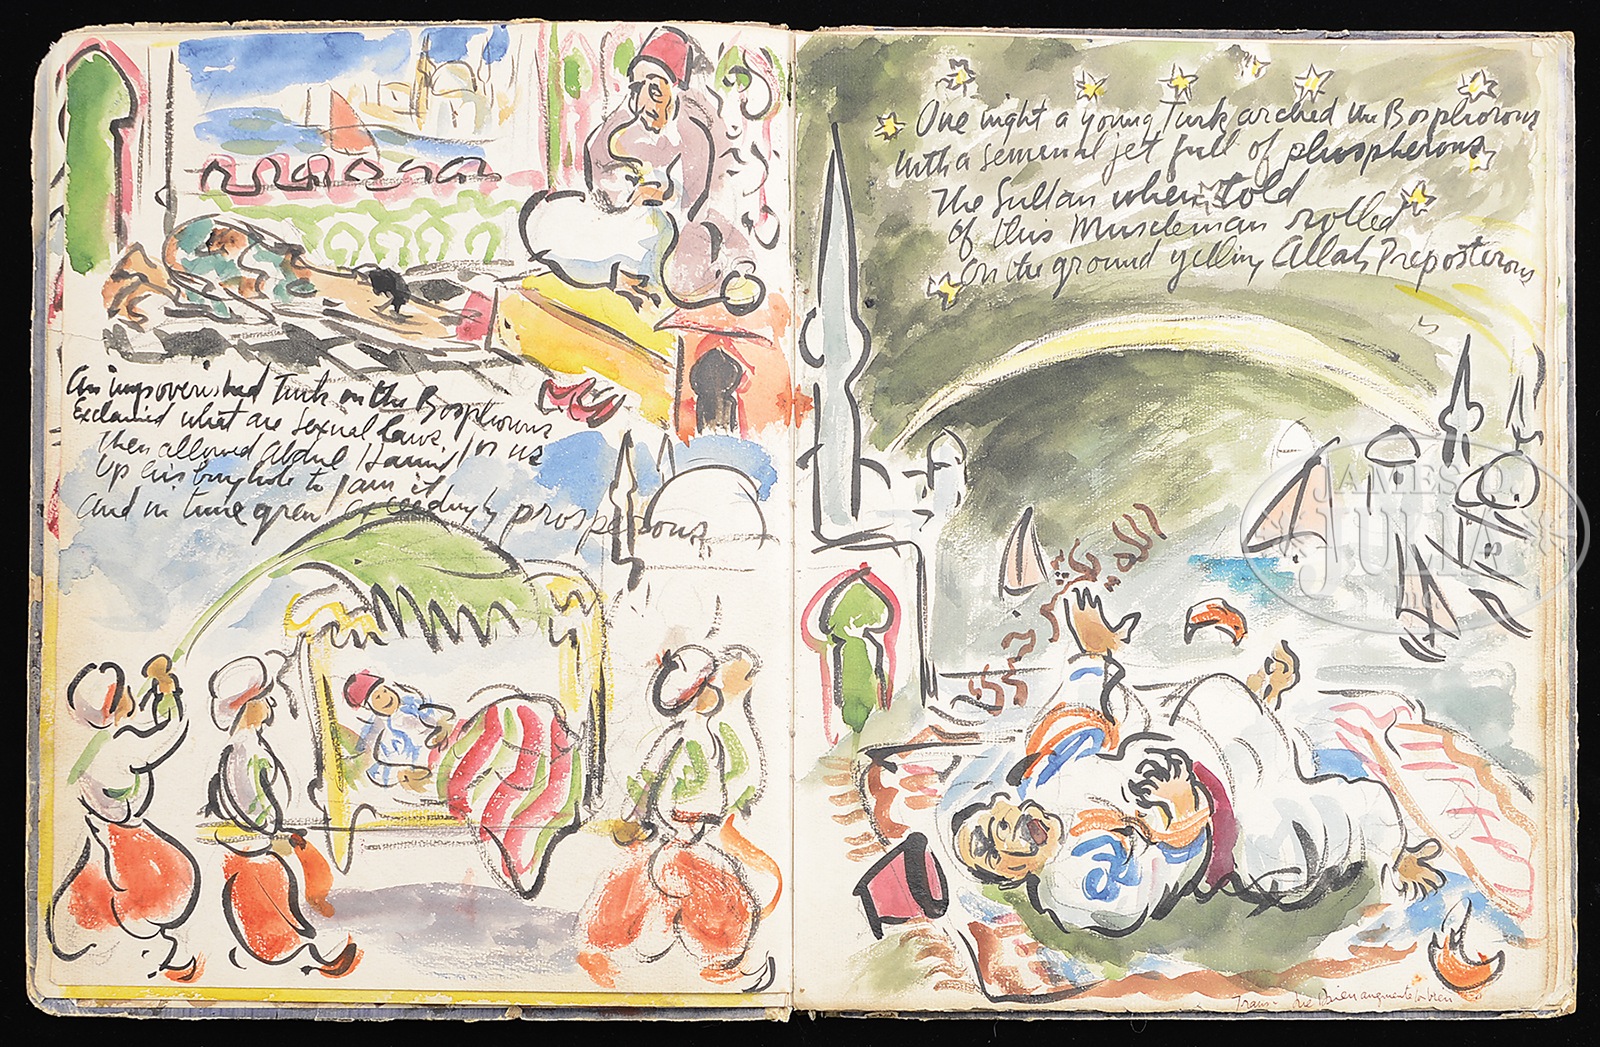 An impoverished Turk on the Bosphorous
Exclaimed what are sexual laws for us
Then allowed Abdul Hamid
Up his bunghole to jam it
And in time grew exceedingly prosperous
One night a young Turk arched the Bosphorous
With a seminal jet full of phospherous,
The Sultan when told
of this Muscleman rolled
on the ground yelling Allah Preposterous
JAMES D.
JULIA
Inc.
Trans.